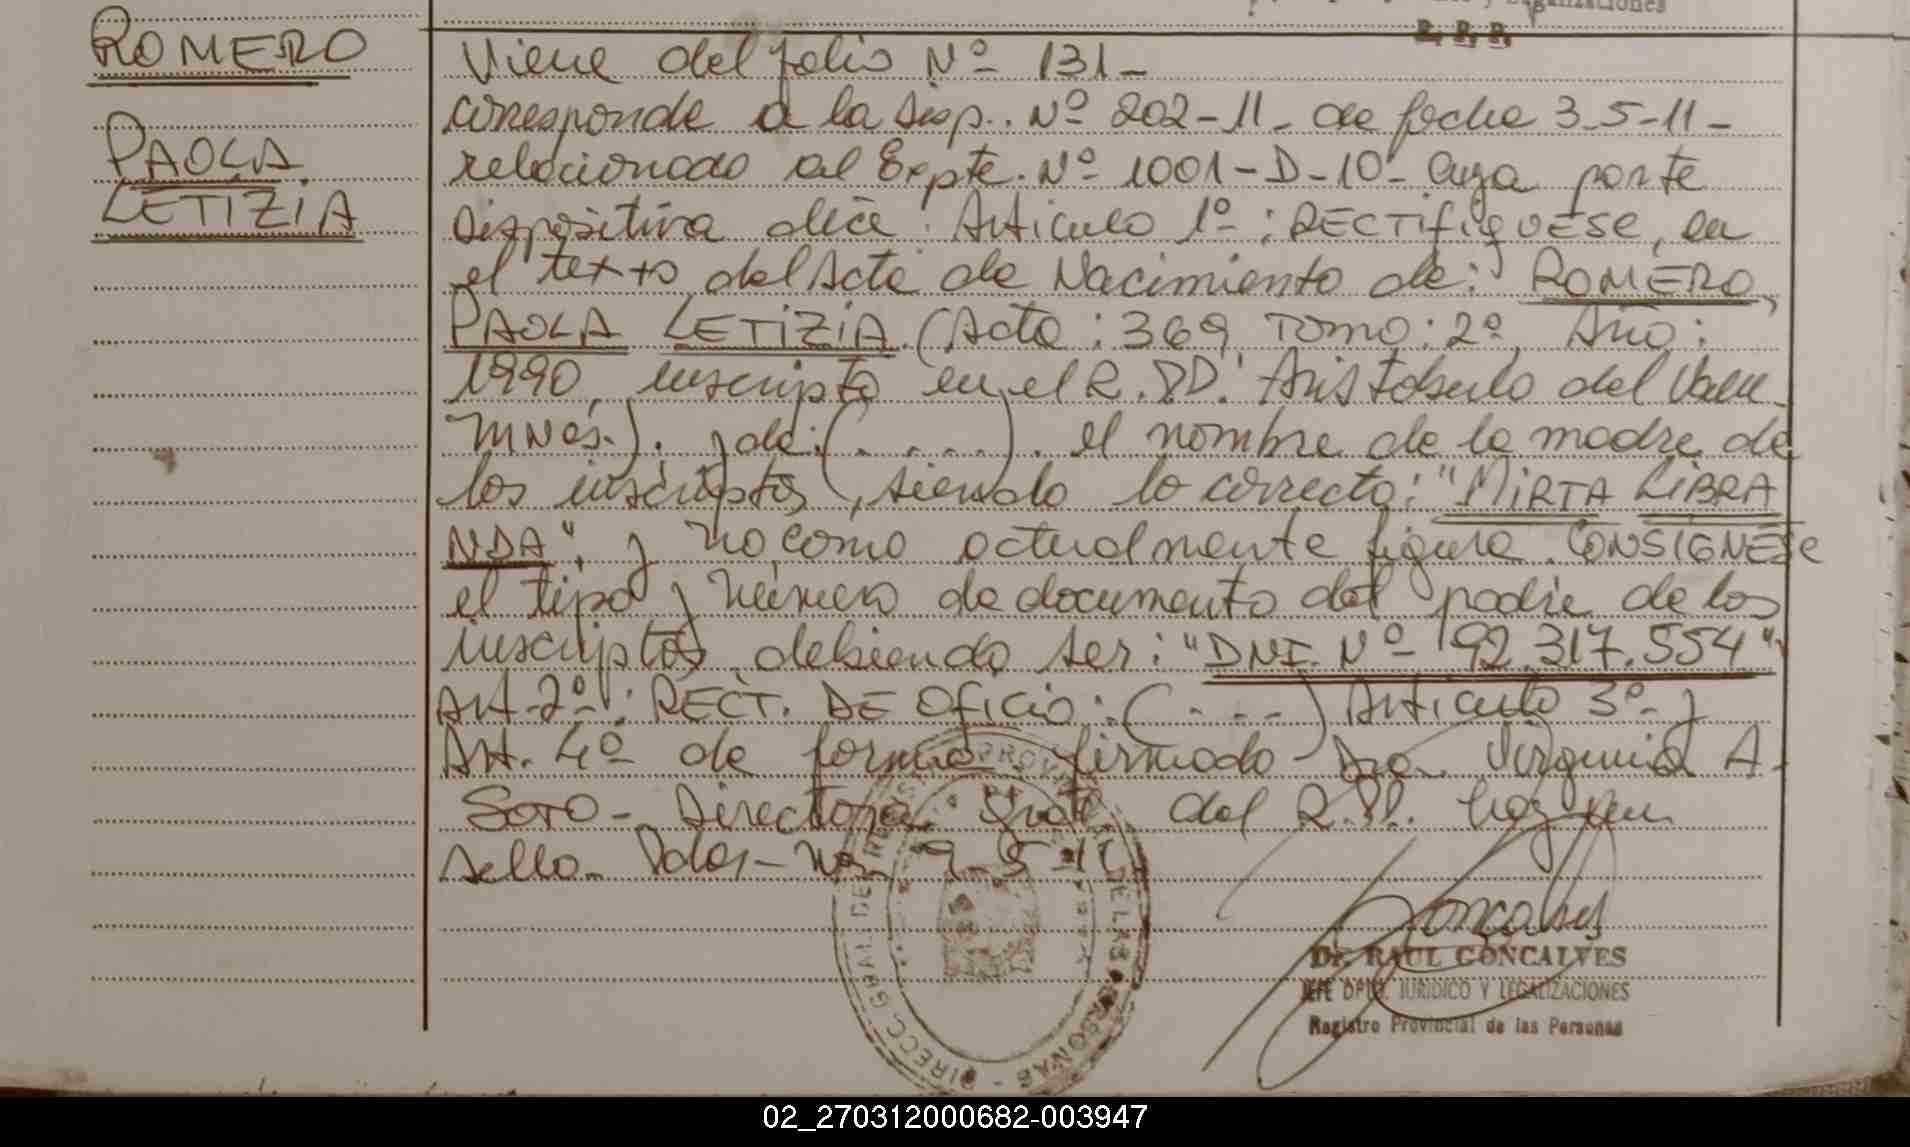 R. P. P.
ROMERO
PAOLA
LETIZIA
Viene del folio Nº 131-
corresponde a la Disp. Nº 202-11- de fecha 3-5-11-
relacionado al Expte. Nº 1001-D-10- cuya parte
Dispositiva dice: Articulo 1º: RECTIFIQUESE, en
el texto del Acta de Nacimiento de: ROMERO,
PAOLA LETIZIA (Acta: 369 Tomo: 2º Año:
1990, inscripto en el R.PD. Aristobulo del Valle
Mnes.). y de: (. . . . .). el nombre de la madre de
los inscriptos, siendo lo correcto: "MIRTA LIBRA
NDA", y no como actualmente figura. CONSIGNESE
el tipo y Número de documento del padre de los
inscriptos debiendo ser: "DNI. Nº 92.317.554"
Art-2º: RECT. DE OFICIO: (. . . .) Articulo 3º y
Art. 4º de forma firmado Dra. Virginia A.
SOTO- Directora Gral. del R.P. hay un
sello- Pdas- Mnes 9-5-11
Dr. RAUL GONCALVES
JEFE DPTO. JURIDICO Y LEGALIZACIONES
Registro Provincial de las Personas
02_270312000682-003947